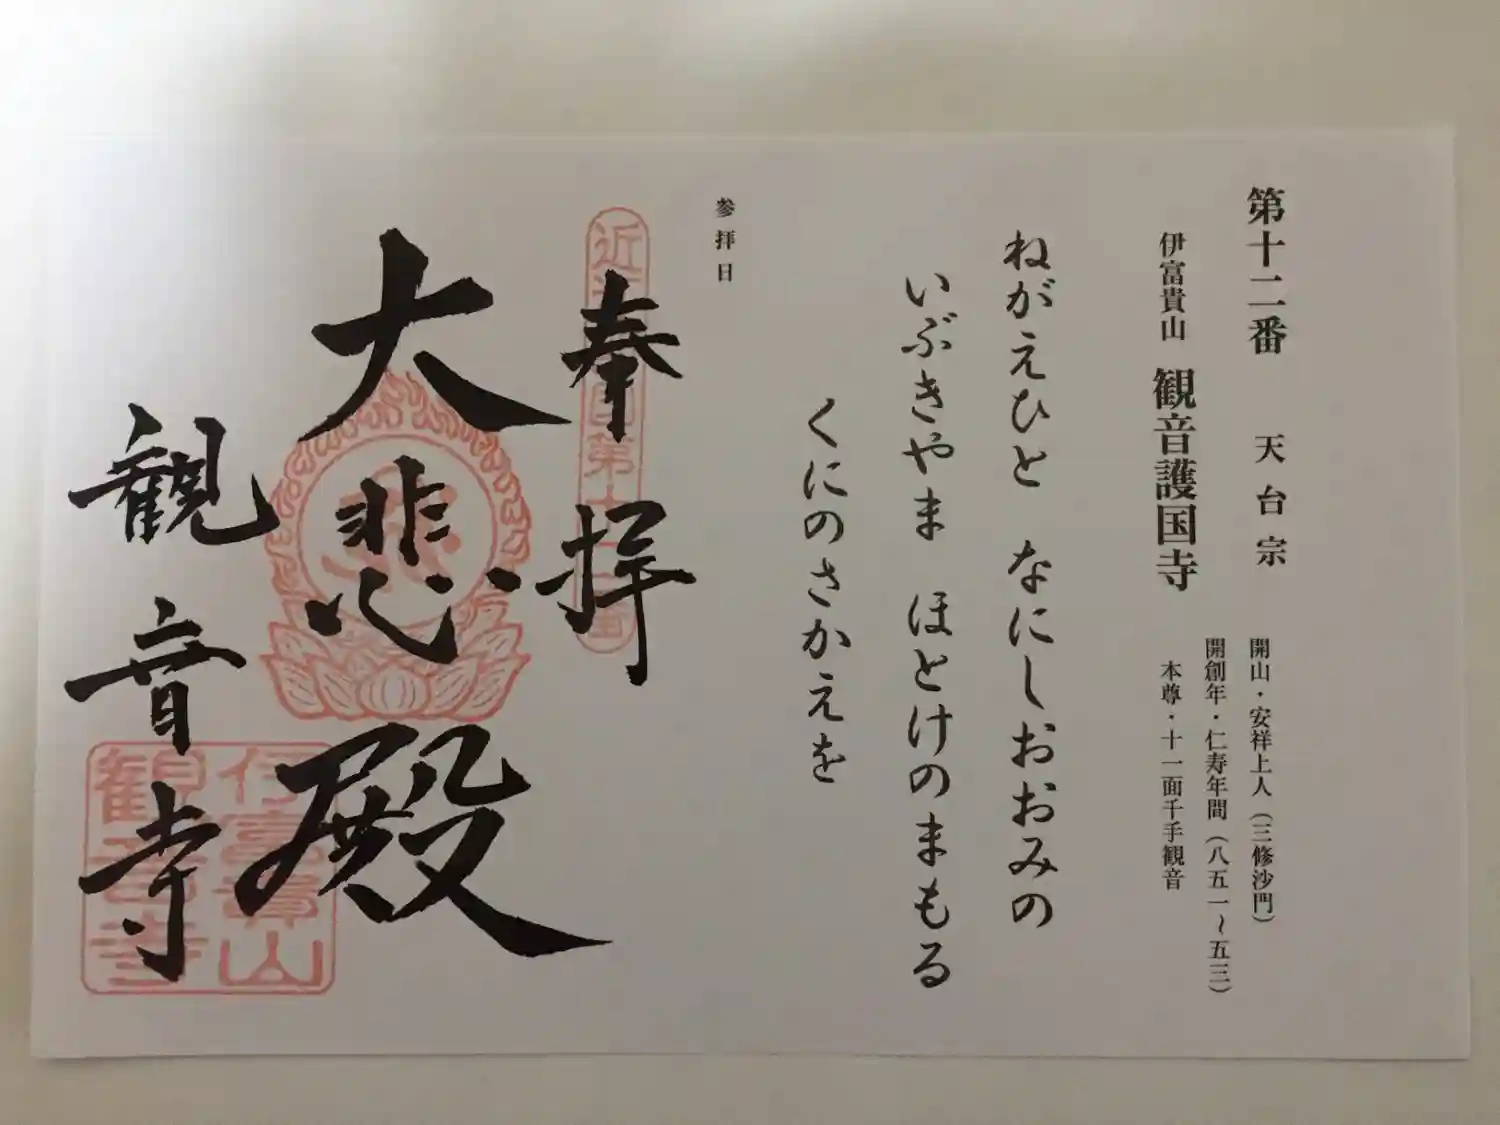 第十二番　天台宗
伊富貴山　観音護国寺
開山・安祥上人（三修沙門）
開創年・仁寿年間（八五一～五三）
本尊・十一面千手観音
ねがえひと　なにしおおみの
いぶきやま　ほとけのまもる
くにのさかえを
参拝日
奉拝
大悲殿
観音寺
伊富貴山
観音寺